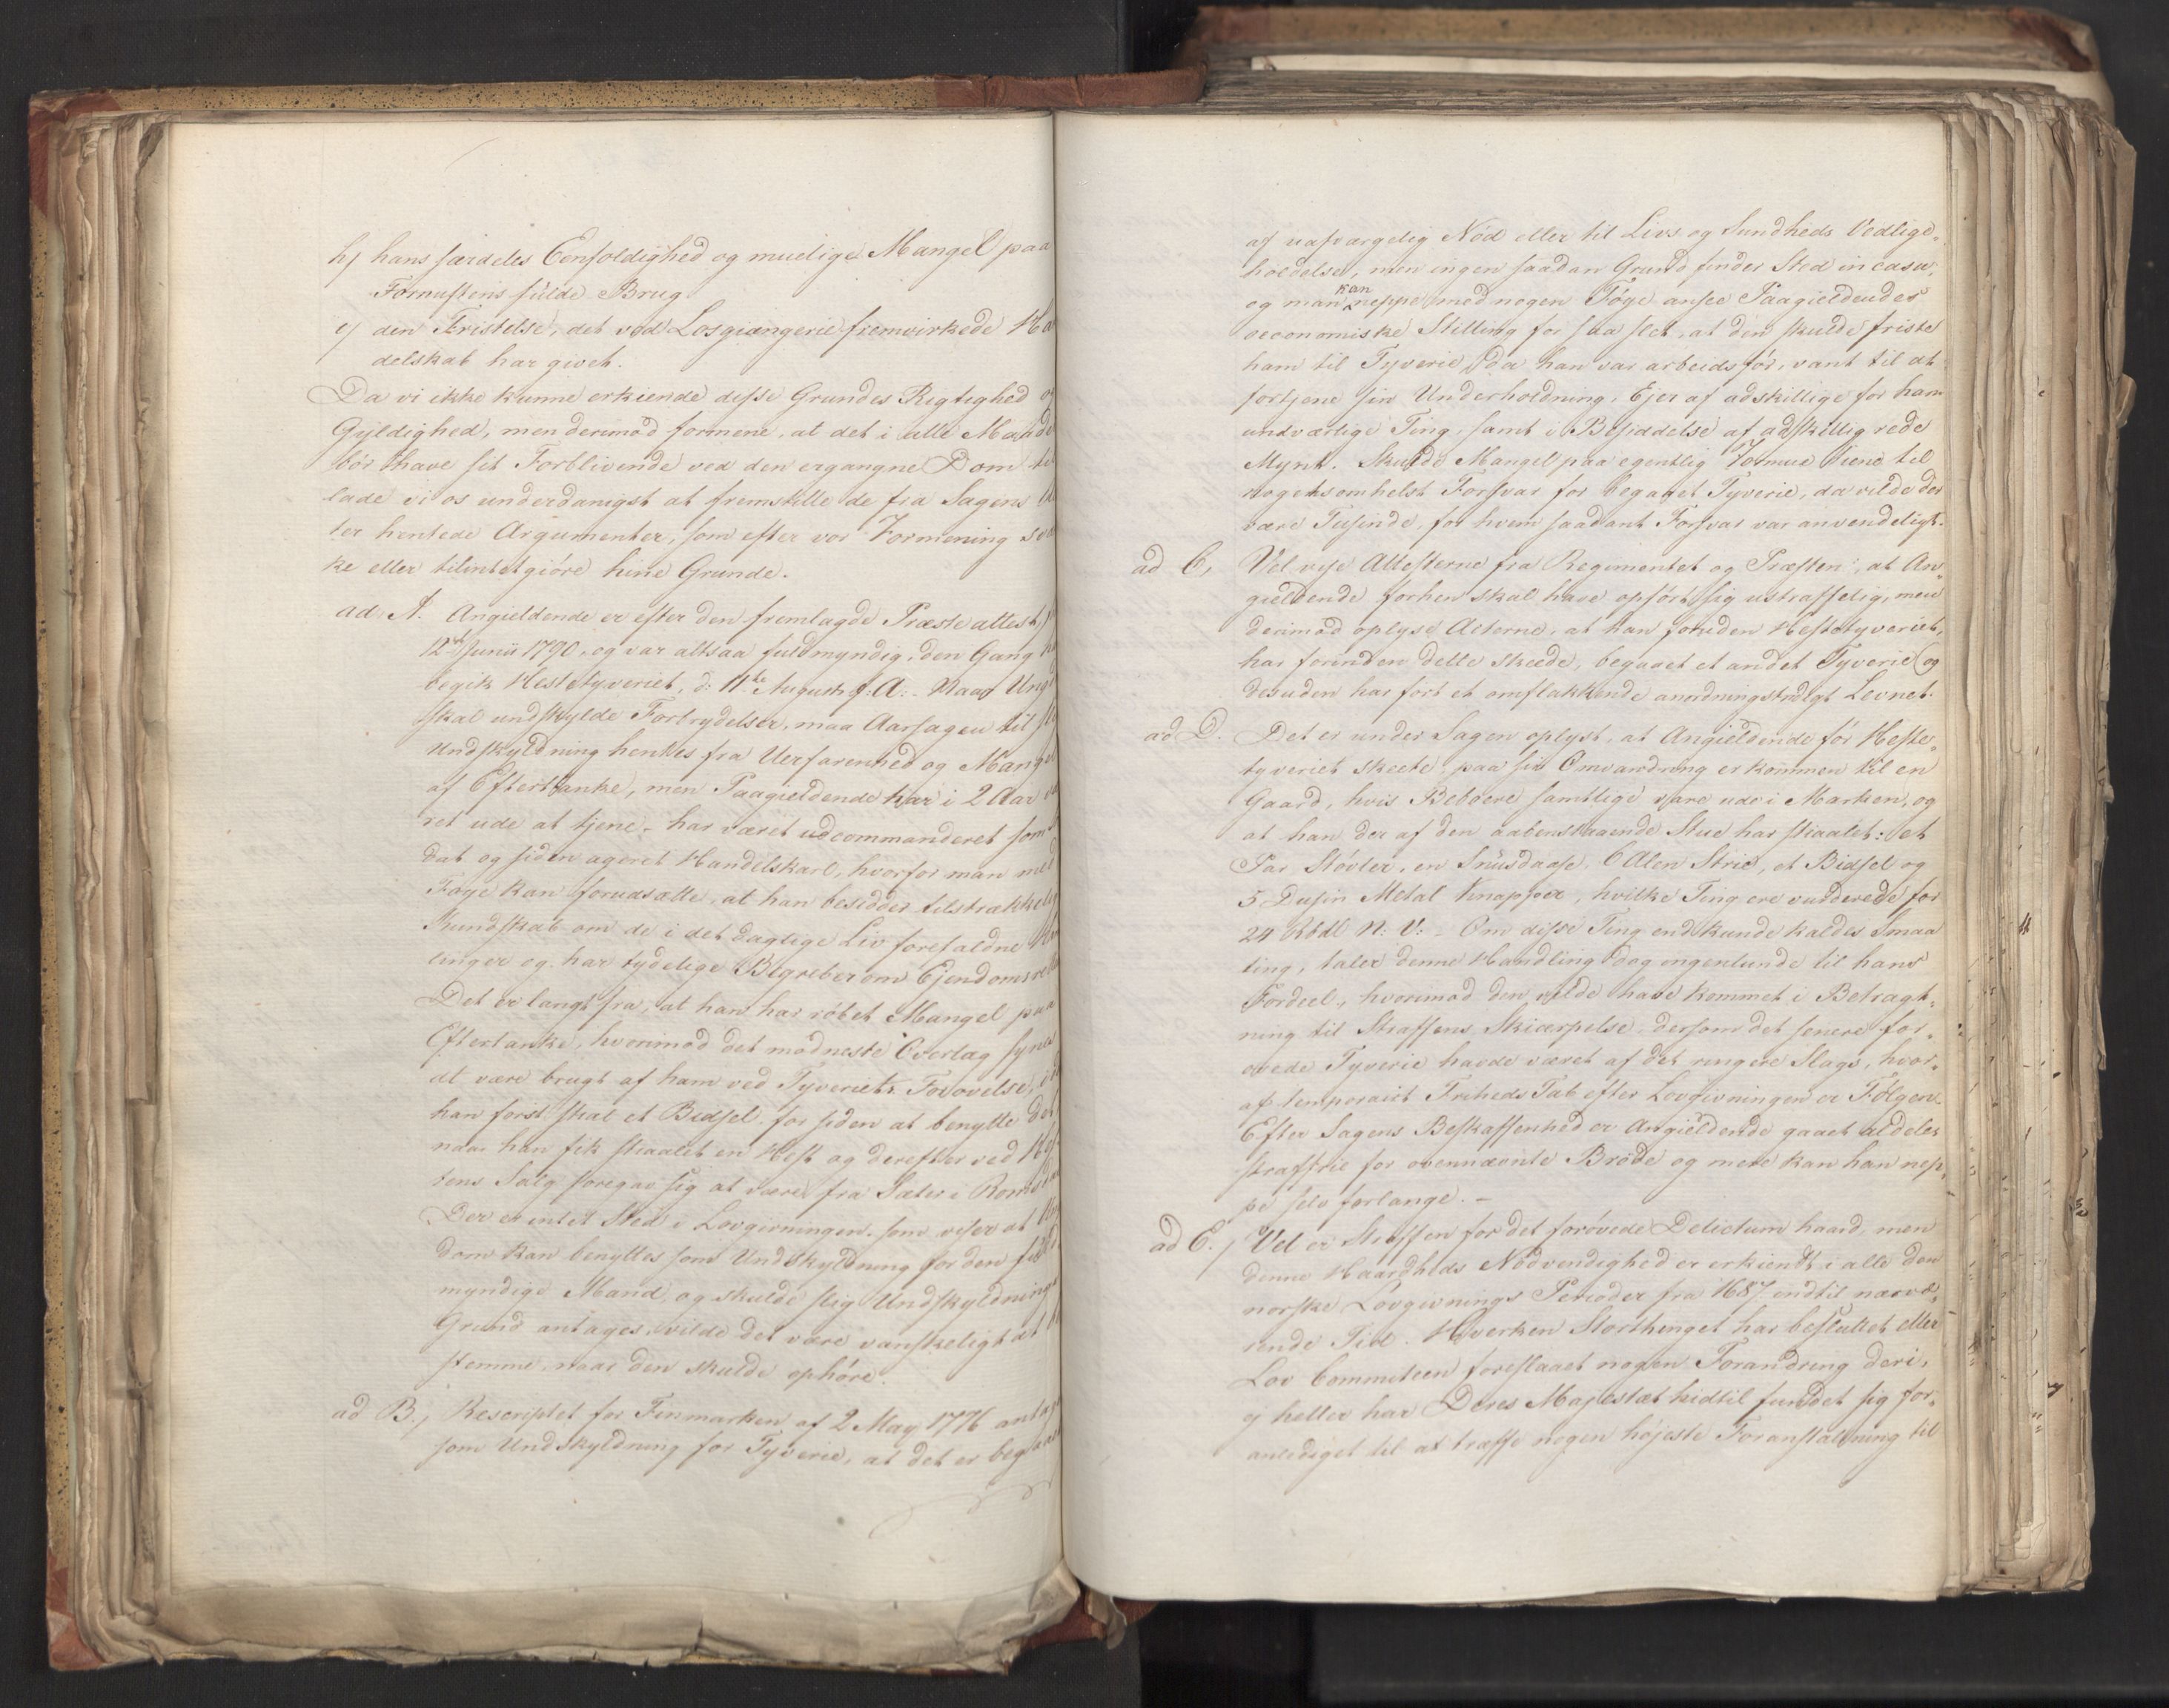 h) hans særdeles Eenfoldighed og muelige Mangel paa
Fornuftens fulde Brug
i) den Fristelse, det ved Losgiængerie fremvirkede
delskab har givet.
Da vi ikke kunne erkiende disse Grundes Rigtighed
Gyldighed, men derimod formene, at det i alle
bör have sit Forblivende ved den ergangne Dom
lade vi os underdanigst at fremstille de fra Sagens
ter hentede Argumenter, som efter vor Formening
ke eller tilintetgiöre hine Grunde.
ad A. Angieldende er efter den fremlagde Præste attest,
12te Junii 1790, og var altsaa fuldmyndig, den Gang
begik Hestetyveriet, d: 11te August f: A:. Naar
skal undskylde Forbrydelser, maa Aarsagen til
Undskyldning hentes fra Uerfarenhed og
af Eftertanke, men Paagieldende har i 2 Aar
ret ude at tjene, har været udcommanderet som
dat og siden ageret Handelskarl, hvorfor man med
Föye kan forudsætte, at han besidder
Kundskab om de i det daglige Liv forefaldne
linger og har tydelige Begreber om
Det er langt fra, at han har röbet Mangel paa
Eftertanke, hvorimod det modneste Overlæg synes
at være brugt af ham ved Tyveriets Forövelse,
han först stial et Bidsel for siden at benytte det
naar han fik stiaalet en Hest og derefter ved
tens Salg foregav sig at være fra Sæter i
Der er intet Sted i Lovgivningen, som viser at
dom kan benyttes som Undskyldning for den
myndige Mand, og skulde slig
Grund antages, vilde det være vanskeligt at
stemme, naar den skulde ophöre.
ad B., Rescriptet for Finmarken af 2 May 1776
som Undskyldning for Tyverie, at det er
af uafværgelig Nöd eller til Livs og Sundheds Vedlige-
holdelse, men ingen saadan Grund finder Sted in casu,
og man kan neppe med nogen Föye ansee Paagieldendes
oeconomiske Stilling for saa slet, at den skulde friste
ham til Tyverie, da han var arbeidsför, vant til at
fortjene sin Underholdning, Ejer af adskillige for ham
undværlige Ting, samt i Besiddelse af adskillig rede
Mynt. Skulde Mangel paa egentlig Formue tiene til
nogetsomhelst Forsvar for begaaet Tyverie, da vilde der
være Tusinde, for hvem saadant Forsvar var anvendeligt.
ad C, Vel vise Attesterne fra Regimentet og Præsten, at An-
gieldende forhen skal have opfört sig ustraffelig, men
derimod oplyse Acterne, at han foruden Hestetyveriet,
har forinden dette skeede, begaaet et andet Tyverie og
desuden har fört et omflakkende anordningstridigt Levnet.
ad D. Det er under Sagen oplyst, at Angieldende för Heste-
tyveriet skeete, paa sin Omvandring er kommen til en
Gaard, hvis Beboere samtlige vare ude i Marken, og
at han der af den aabenstaaende Stue har stiaalet: et
Par Stövler, en Snusdaase, 6 Alen Strie, et Bidsel og
5 Dusin Metal Knapper, hvilke Ting ere vurderede for
24 Rbdl N: V: - Om disse Ting end kunde kaldes Smaa
ting, taler denne Handling dog ingenlunde til hans
Fordeel, hvorimod den vilde have kommet i Betragt-
ning til Straffens Skiærpelse, dersom det senere for-
övede Tyverie havde været af det ringere Slags, hvor-
af temporairt Friheds Tab efter Lovgivningen er Fölgen.
Efter Sagens Beskaffenhed er Angieldende gaaet aldeles
straffrie for ovennævnte Bröde og mere kan han nep-
pe selv forlange. -
ad E., Vel er Straffen for det forövede Delictum haard, men
denne Haardheds Nödvendighed er erkiendt i alle den
norske Lovgivnings Perioder fra 1687 indtil nærvæ-
rende Tid. Hverken Storthinget har besluttet eller
Lov Committeen foreslaaet nogen Forandring deri,
ej heller har Deres Majestæt hidtil fundet sig for-
anlediget til at træffe nogen höjeste Foranstaltning til